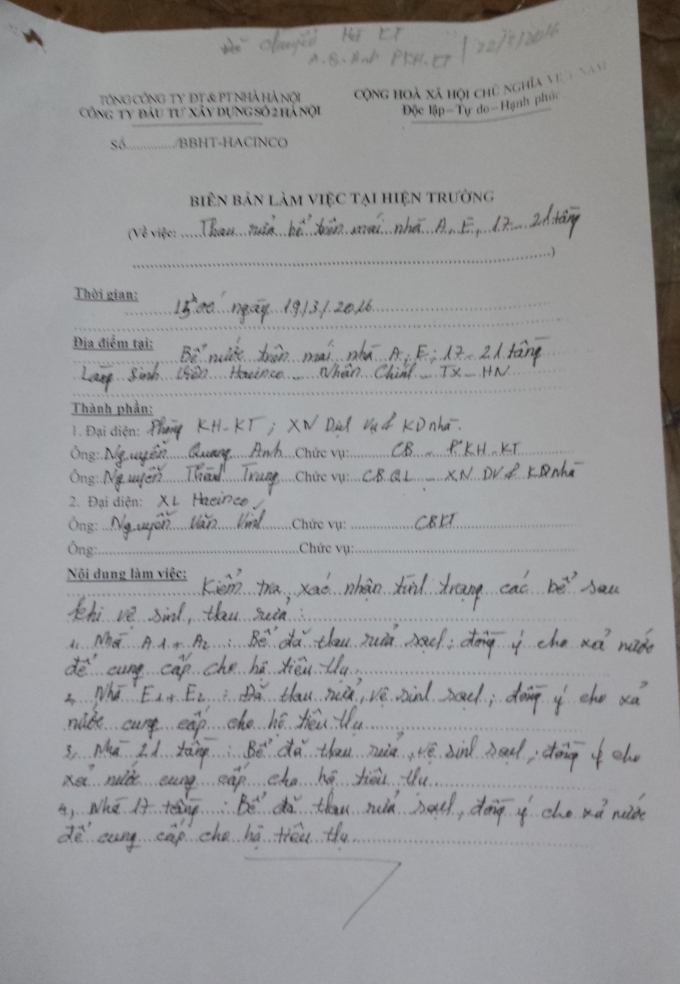 Đã chuyển KT
A.Q.Anh PKH-KT | 22/3/2016
TỔNG CÔNG TY ĐT & PT NHÀ HÀ NỘI
CỘNG HOÀ XÃ HỘI CHỦ NGHĨA VIỆT NAM
CÔNG TY ĐẦU TƯ XÂY DỰNG SỐ 2 HÀ NỘI
Độc lập – Tự do – Hạnh phúc
Số............../BBHT-HACINCO
BIÊN BẢN LÀM VIỆC TẠI HIỆN TRƯỜNG
(Về việc: Thau rửa bể trên mái nhà A, E, 17 - 21 tầng
)
Thời gian:
15h00' ngày 19/3/2016
Địa điểm tại: Bể nước trên mái nhà A, E; 17 - 21 tầng
Làng Sinh Viên Hacinco - Nhân Chính - TX - HN
Thành phần:
1. Đại diện: Phòng KH-KT; XN Dịch Vụ & KD nhà.
Ông: Nguyễn Quang Anh Chức vụ: CB - P.KH-KT
Ông: Nguyễn Thành Trung Chức vụ: CBQL - XN DV & KD nhà
2. Đại diện: XL Hacinco
Ông: Nguyễn Văn Vĩnh Chức vụ: CBKT
Ông: Chức vụ:
Nội dung làm việc: Kiểm tra, xác nhận tình trạng các bể sau
khi vệ sinh, thau rửa:
1, Nhà A1 + A2 : Bể đã thau rửa sạch; đồng ý cho xả nước
để cung cấp cho hộ tiêu thụ
2, Nhà E1 + E2 : Đã thau rửa, vệ sinh sạch; đồng ý cho xả
nước cung cấp cho hộ tiêu thụ
3, Nhà 21 tầng : Bể đã thau rửa, vệ sinh sạch; đồng ý cho
xả nước cung cấp cho hộ tiêu thụ
4, Nhà 17 tầng : Bể đã thau rửa sạch, đồng ý cho xả nước
để cung cấp cho hộ tiêu thụ